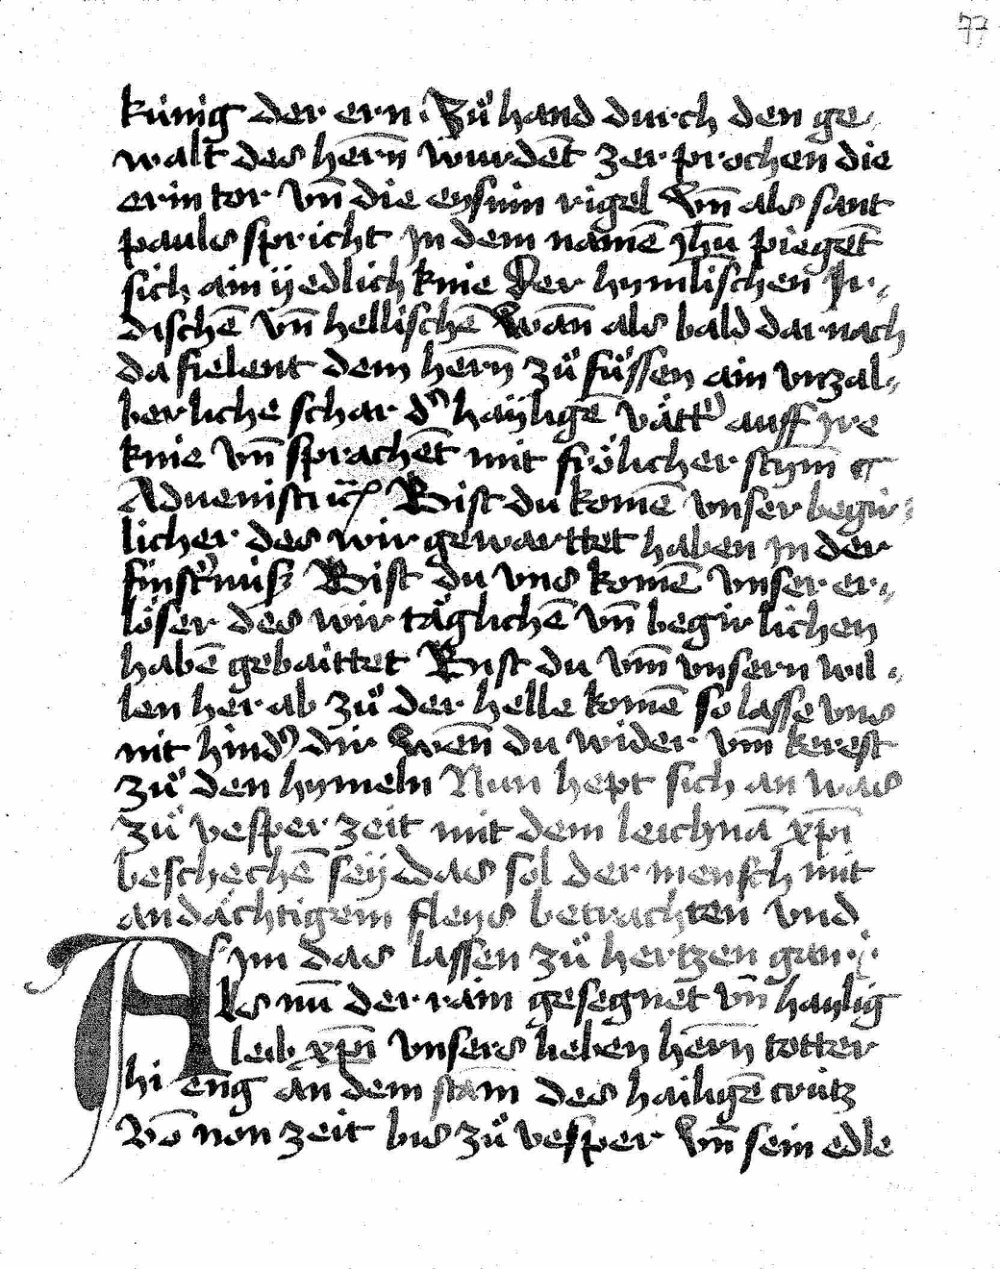 77
künig der ern · Zů hand durch den ge-
walt des herñ wurdēt zerprochen die
erin tor vñ die eysnin rigel Vñ als sant
pauls spricht jn dem namē jhū piegēt
sich ain yedlich knie Der hymlischen Jr-
dischē vñ hellischē Wañ als bald darnach
da fielent dem herñ zů füssen ain vnzal-
berliche schar ds haÿligē vättr auff jre
knie vñ sprachēt mit frölicher stym̄
Advenisti Bist du komē vnser begir-
licher des wir gewarttet haben jn der
finstrnuß Bist du vns komē vnser er-
löser des wir täglichē vñ begirlichen
habē gebaittet Bist du vm̄ vnsern wil-
len her ab zů der helle komē so lasse vns
nit hinds dir Weñ du wider vm̄ kerest
zů den hymeln Nun hept sich an was
zů vesper zeit mit dem leichnā xp̄i
beschechē seÿ das sol der mensch mit
andächtigem fleys betrachten vnd
jm das lassen zů hertzen gan
Als nū der rain gesegnet vñ haylig
leib xp̄i vnsers lieben herñ totter
hieng an dem stām des hailigē crütz
Vō non zeit bis zů vesper Vñ sein edle